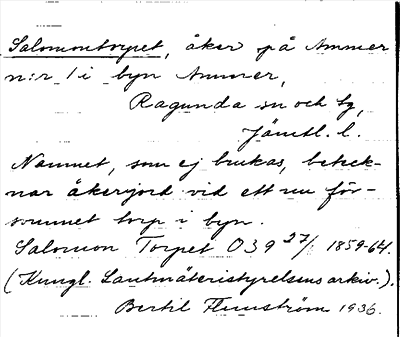 Salomontorpet, åker på Ammer
n:r 1 i byn Ammer,
Ragunda sn och tg,
Jämtl. l.
Namnet, som ej brukas, beteck-
nar åkerjord vid ett nu för-
svunnet torp i byn.
Salomon Torpet O 39 27/1 1859-64.
(Kungl. Lantmäteristyrelsens arkiv.).
Bertil Flemström 1936.